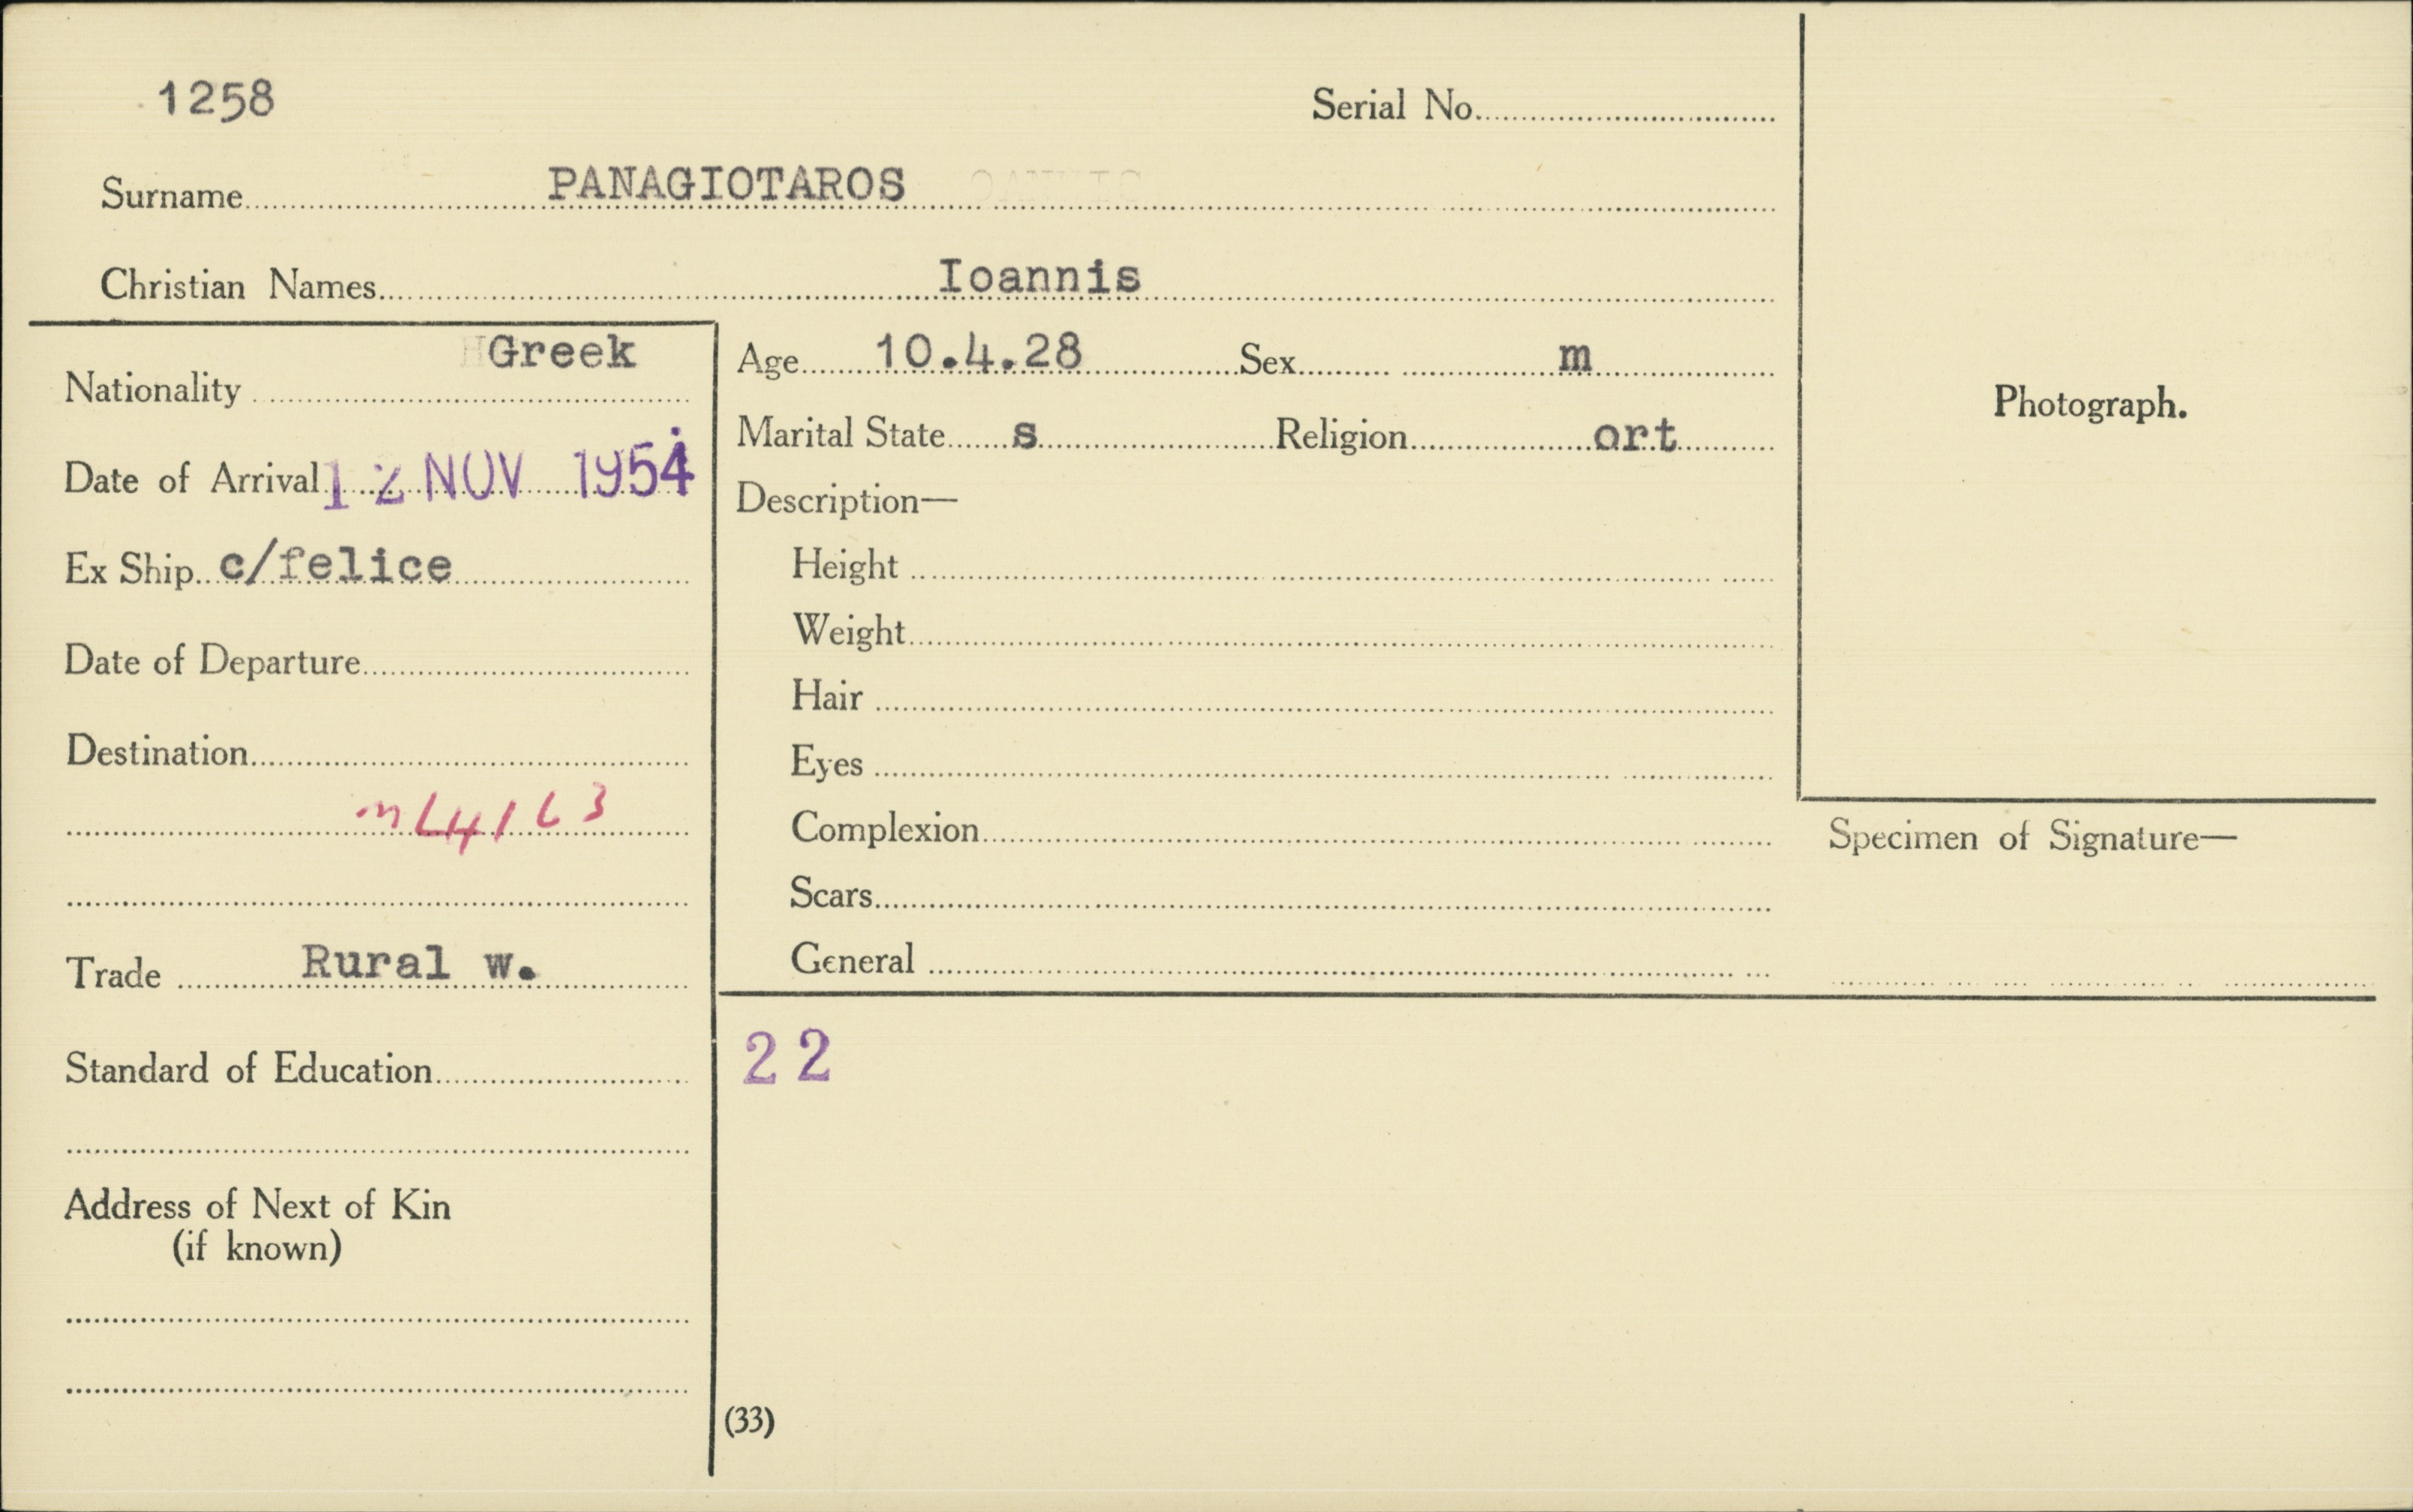 1258
Serial No.
Surname PANAGIOTAROS
Christian Names Ioannis
Nationality Greek
Date of Arrival 12 NOV 1954
Ex Ship c/felice
Date of Departure
Destination
Trade Rural w.
Standard of Education
Address of Next of Kin
(if known)
Age 10.4.28 Sex m
Marital State s Religion ort
Description—
Height
Weight
Hair
Eyes
Complexion
Scars
General
22
(33)
Photograph.
Specimen of Signature—